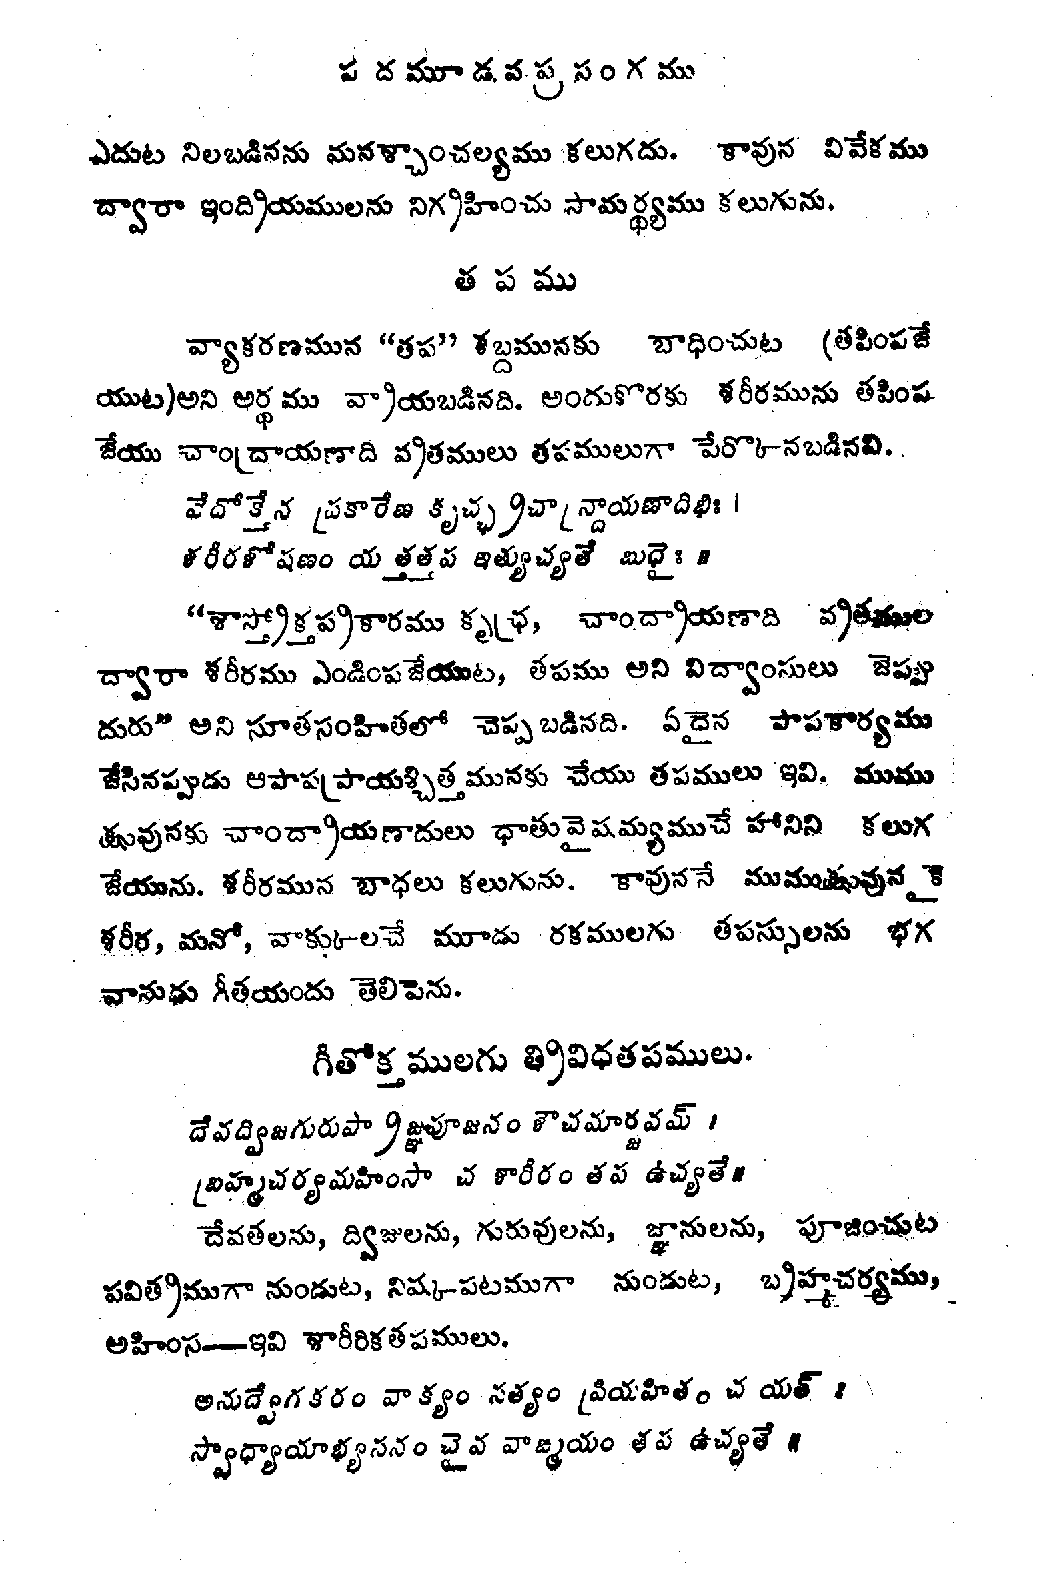 పదమూడవప్రసంగము
ఎదుట నిలబడినను మనశ్చాంచల్యము కలుగదు. కావున వివేకము
ద్వారా ఇంద్రియములను నిగ్రహించు సామర్థ్యము కలుగును.
తపము
వ్యాకరణమున “తప” శబ్దమునకు బాధించుట (తపింపజే
యుట)అని అర్థము వ్రాయబడినది. అందుకొరకు శరీరమును తపింప
జేయు చాంద్రాయణాది వ్రతములు తపములుగా పేర్కొనబడినవి.
వేదోక్తేన ప్రకారేణ కృచ్ఛ్రచాన్ద్రాయణాదిభిః ।
శరీరశోషణం య త్తత్తప ఇత్యుచ్యతే బుధైః ॥
“శాస్త్రోక్తప్రకారము కృచ్ఛ్ర, చాంద్రాయణాది వ్రతముల
ద్వారా శరీరము ఎండింపజేయుట, తపము అని విద్వాంసులు జెప్పు
దురు” అని సూతసంహితలో చెప్పబడినది. ఏదైన పాపకార్యము
జేసినప్పుడు ఆపాపప్రాయశ్చిత్తమునకు చేయు తపములు ఇవి. ముము
క్షువునకు చాంద్రాయణాదులు ధాతువైషమ్యముచే హానిని కలుగ
జేయును. శరీరమున బాధలు కలుగును. కావుననే ముముక్షువునకై
శరీర, మనో, వాక్కులచే మూడు రకములగు తపస్సులను భగ
వానుడు గీతయందు తెలిపెను.
గీతోక్తములగు త్రివిధతపములు.
దేవద్విజగురుప్రాజ్ఞపూజనం శౌచమార్జవమ్ ।
బ్రహ్మచర్యమహింసా చ శారీరం తప ఉచ్యతే॥
దేవతలను, ద్విజులను, గురువులను, జ్ఞానులను, పూజించుట
పవిత్రముగా నుండుట, నిష్కపటముగా నుండుట, బ్రహ్మచర్యము,
అహింస—ఇవి శారీరికతపములు.
అనుద్వేగకరం వాక్యం సత్యం ప్రియహితం చ యత్ ।
స్వాధ్యాయాభ్యసనం చైవ వాఙ్మయం తప ఉచ్యతే ॥